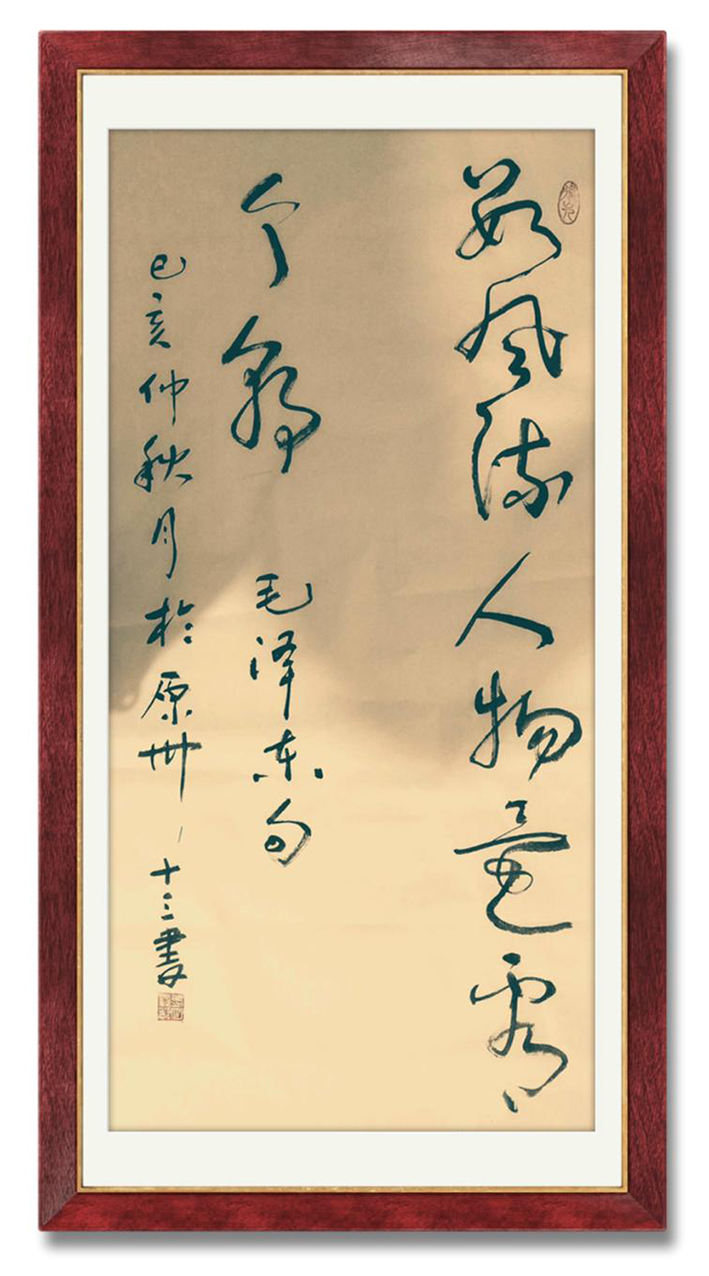 数风流人物还看
今朝 毛泽东句
己亥仲秋月於原州 十三書